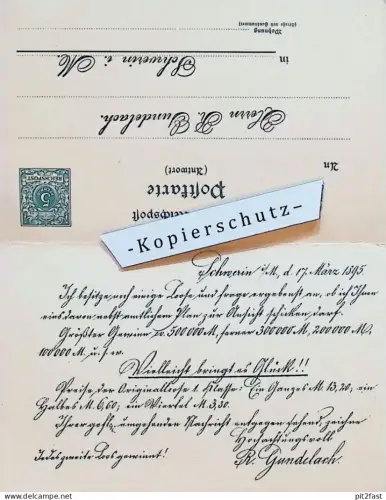 Wohnung
(Straße und Hausnummer)
in Schwerin i. M.
Herrn R. Gundelach.
An
(Antwort)
Postkarte
Reichspost
5
REICHSPOST
-Kopierschutz-
Schwerin i/M., d. 17. März 1895.
Ich besitze noch einige Loose und frage ergebenst an, ob ich Ihnen
eins davon nebst amtlichem Plan zur Ansicht schicken darf.
Größter Gewinn ev. 500000 M., ferner 300000 M, 200000 M,
100000 M. u. s. w.
Vielleicht bringt es Glück!!
Preise der Originalloose 1. Klasse: Ein Ganzes M. 13,20; ein
Halbes M. 6,60; ein Viertel M. 3,30.
Ihrer gefl. umgehenden Nachricht entgegen sehend, zeichne
Hochachtungsvoll
Jedes zweite Loos gewinnt!
R. Gundelach.
pit2fast